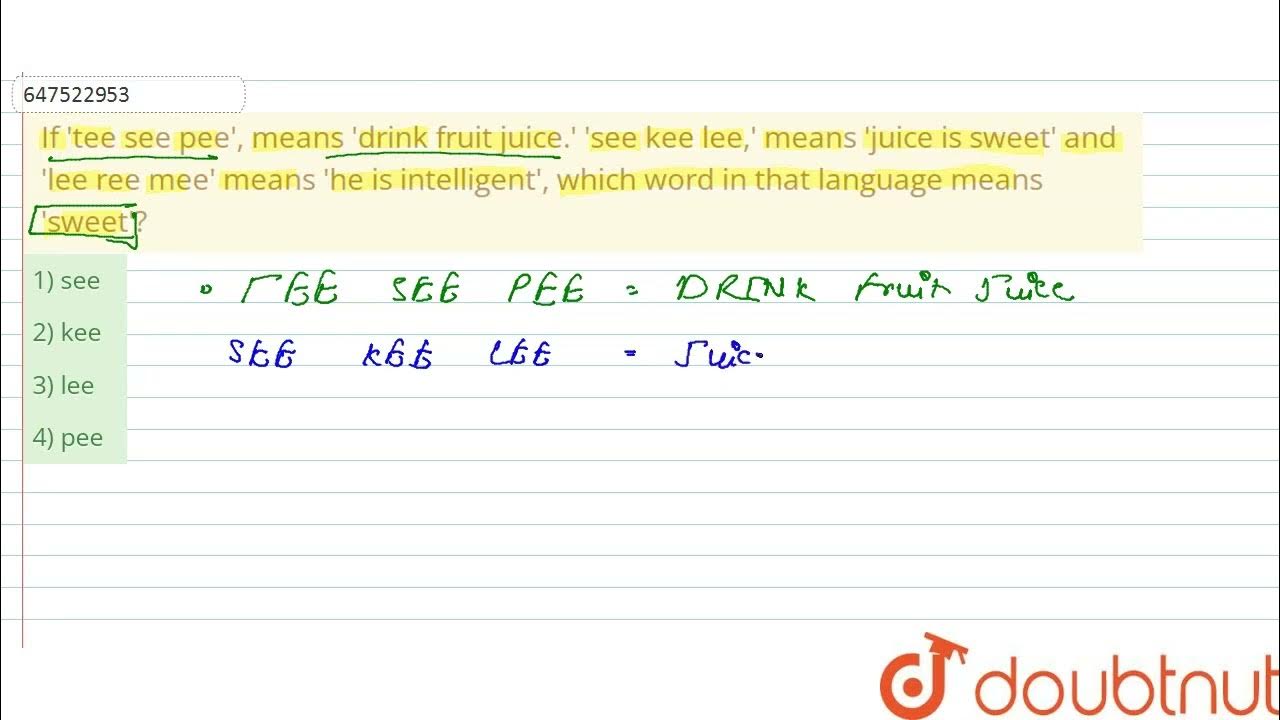 647522953
If 'tee see pee', means 'drink fruit juice.' 'see kee lee,' means 'juice is sweet' and
'lee ree mee' means 'he is intelligent', which word in that language means
'sweet'?
1) see
2) kee
3) lee
4) pee
TEE SEE PEE = DRINK fruit Juice
SEE KEE LEE = Juic
doubtnut